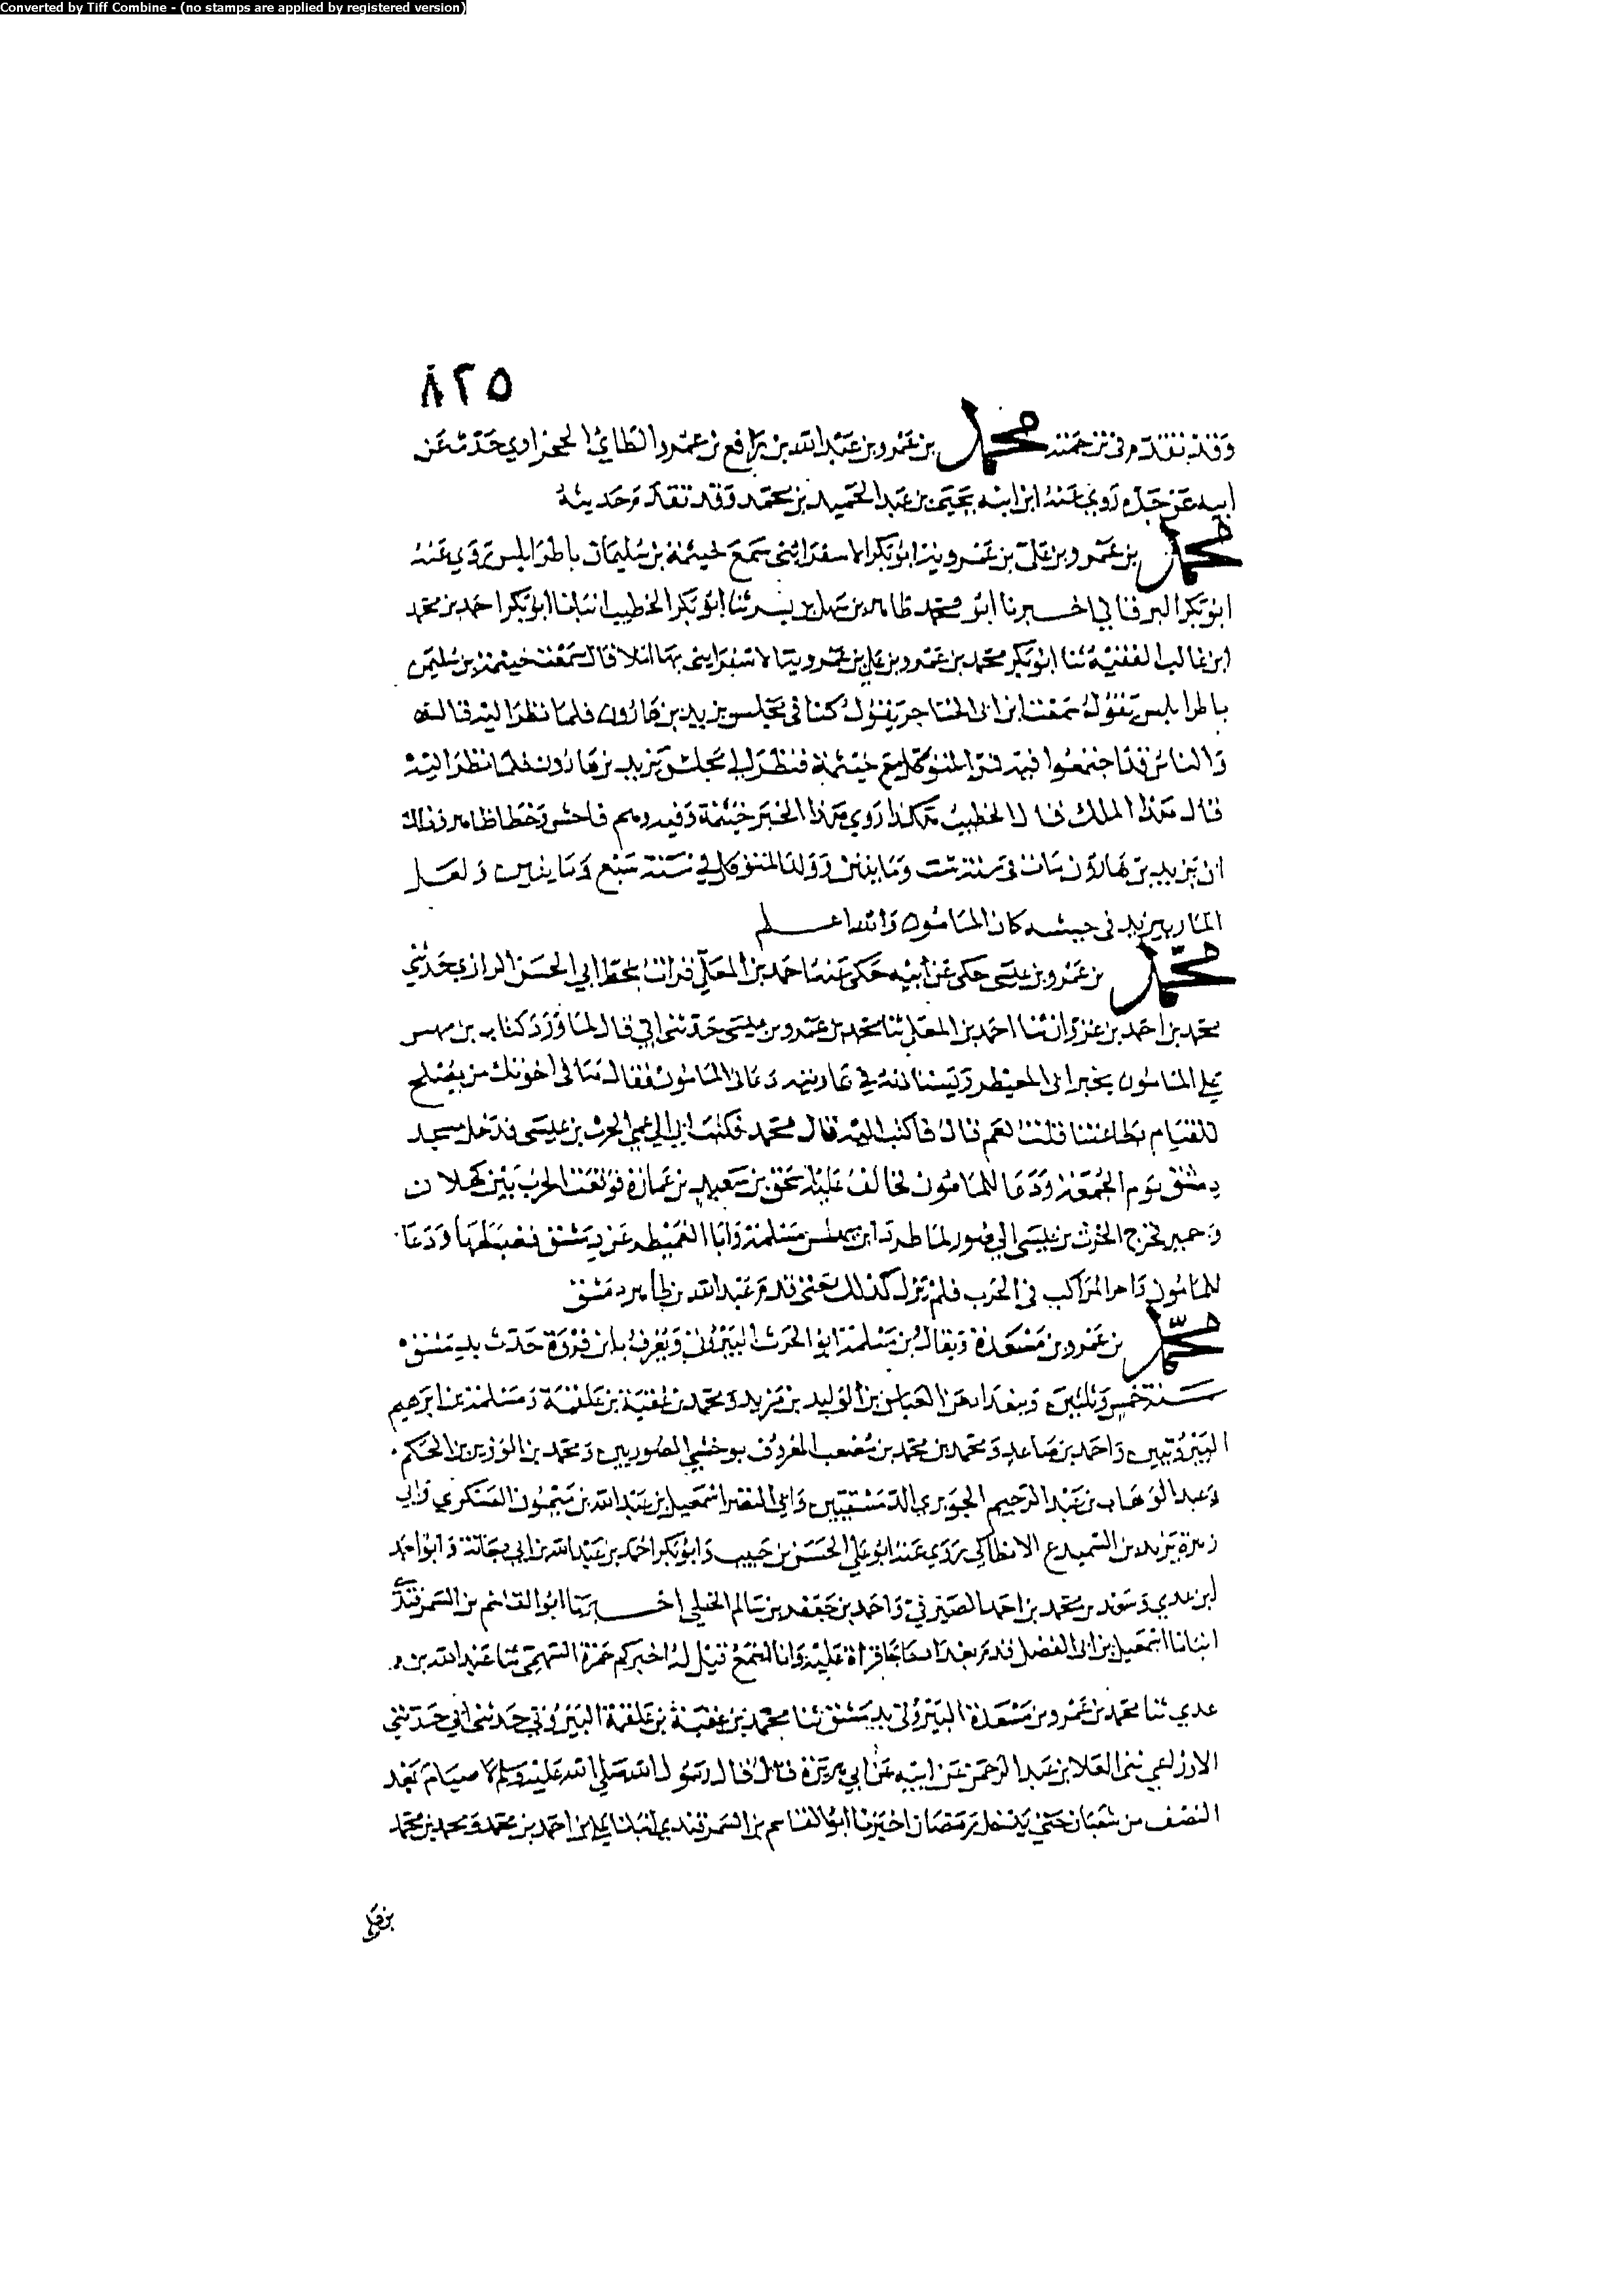 Converted by Tiff Combine - (no stamps are applied by registered version)
٨٢٥
وقد تقدم في ترجمته محمد بن عمرو بن عبد الله بن رافع بن عمرو الطائي الحجراوي حدث عن
ابيه عن جده روى عنه ابن ابنه يحيى بن عبد الحميد بن محمد وقد تقدم حديثه
محمد بن عمرو بن علي بن عمرويه ابو بكر الاسفرايني سمع خيثمة بن سليمان باطرابلس روى عنه
ابو بكر البرقاني اخبرنا ابو محمد طاهر بن سهل بن بشر ثنا ابو بكر الخطيب انبانا ابو بكر احمد بن محمد
ابن غالب الفقيه ثنا ابو بكر محمد بن عمرو بن علي بن عمرويه الاسفرايني بها املا قال سمعت خيثمة بن سليمن
باطرابلس يقول سمعت ابن ابي الخناجر يقول كنا في مجلس يزيد بن هارون فلما نظر اليه قال
والناس قد اجتمعوا فمر المتوكل مع خيثمة فنظر الى مجلس يزيد بن هارون فلما نظر اليه
قال هذا الملك قال الخطيب هكذا روى هذا الخبر خيثمة وفيه وهم فاحش وخطا ظاهر وذلك
ان يزيد بن هارون مات في سنة ست ومايتين وولد المتوكل في سنة سبع ومايتين ولعل
المار بيزيد في جيشه كان المامون والله اعلم
محمد بن عمرو بن عيسى حكى عن ابيه حكى عنه احمد بن المعلى قرات بخط ابي الحسن الرازي حدثني
محمد بن احمد بن غزوان ثنا احمد بن المعلى ثنا محمد بن عمرو بن عيسى حدثني ابي قال لما ورد كتاب بن بيهس
على المامون يخبر ابي العميطر ويستاذنه في دعاني المامون فقال ما في اخوتك من يصلح
للقيام بطاعتنا قلت نعم قال فاكتب اليه قال محمد فكتب ابي الى عمي الحرث بن عيسى فدخل مسجد
دمشق يوم الجمعة ودعا للمامون فخالف عليه اسحق بن سعيد بن عمارة فوقعت الحرب بين كهلان
وحمير فخرج الحرث بن عيسى الى صور لما طرد ابن بيهس مسلمة وابا العميطر عن دمشق فضبطها ودعا
للمامون واحرق المراكب في الحرب فلم يزل كذلك حتى قدم عبد الله بن طاهر دمشق
محمد بن عمرو بن مسعدة ويقال بن مسلمة ابو الحرث البيروتي ويعرف بابن فروة حدث بدمشق
سنة خمس وثلثين وببغداد عن العباس بن الوليد بن مزيد ومحمد بن عقبة بن علقمة ومسلمة بن ابرهيم
البيروتيين واحمد بن صاعد ومحمد بن محمد بن مصعب المعروف بوحشي الصوريين ومحمد بن الوزير بن الحكم
وعبد الوهاب بن عبد الرحيم الجوبري الدمشقيين وابي النضر اسمعيل بن عبد الله بن ميمون العسكري وابي
زهرة يزيد بن السميدع الانطاكي روى عنه ابو علي الحسن بن حبيب وابو بكر احمد بن عبد الله بن ابي دجانة وابو احمد
ابن عدي وسعد بن محمد بن احمد الصيرفي واحمد بن جعفر بن سالم الختلي اخبرنا ابو القاسم بن السمرقندي
انبانا اسمعيل بن ابي الفضل قدم بغداد حاجا قراة عليه وانا اسمع قيل له اخبركم حمزة السهمي ثنا عبد الله بن
عدي ثنا محمد بن عمرو بن مسعدة البيروتي بدمشق ثنا محمد بن عقبة بن علقمة البيروتي حدثني ابي حدثني
الاوزاعي ثنى العلا بن عبد الرحمن عن ابيه عن ابي هريرة قال قال رسول الله صلى الله عليه وسلم لا صيام بعد
النصف من شعبان حتى يدخل رمضان اخبرنا ابو القاسم بن السمرقندي انبانا علي بن احمد بن محمد ومحمد بن محمد